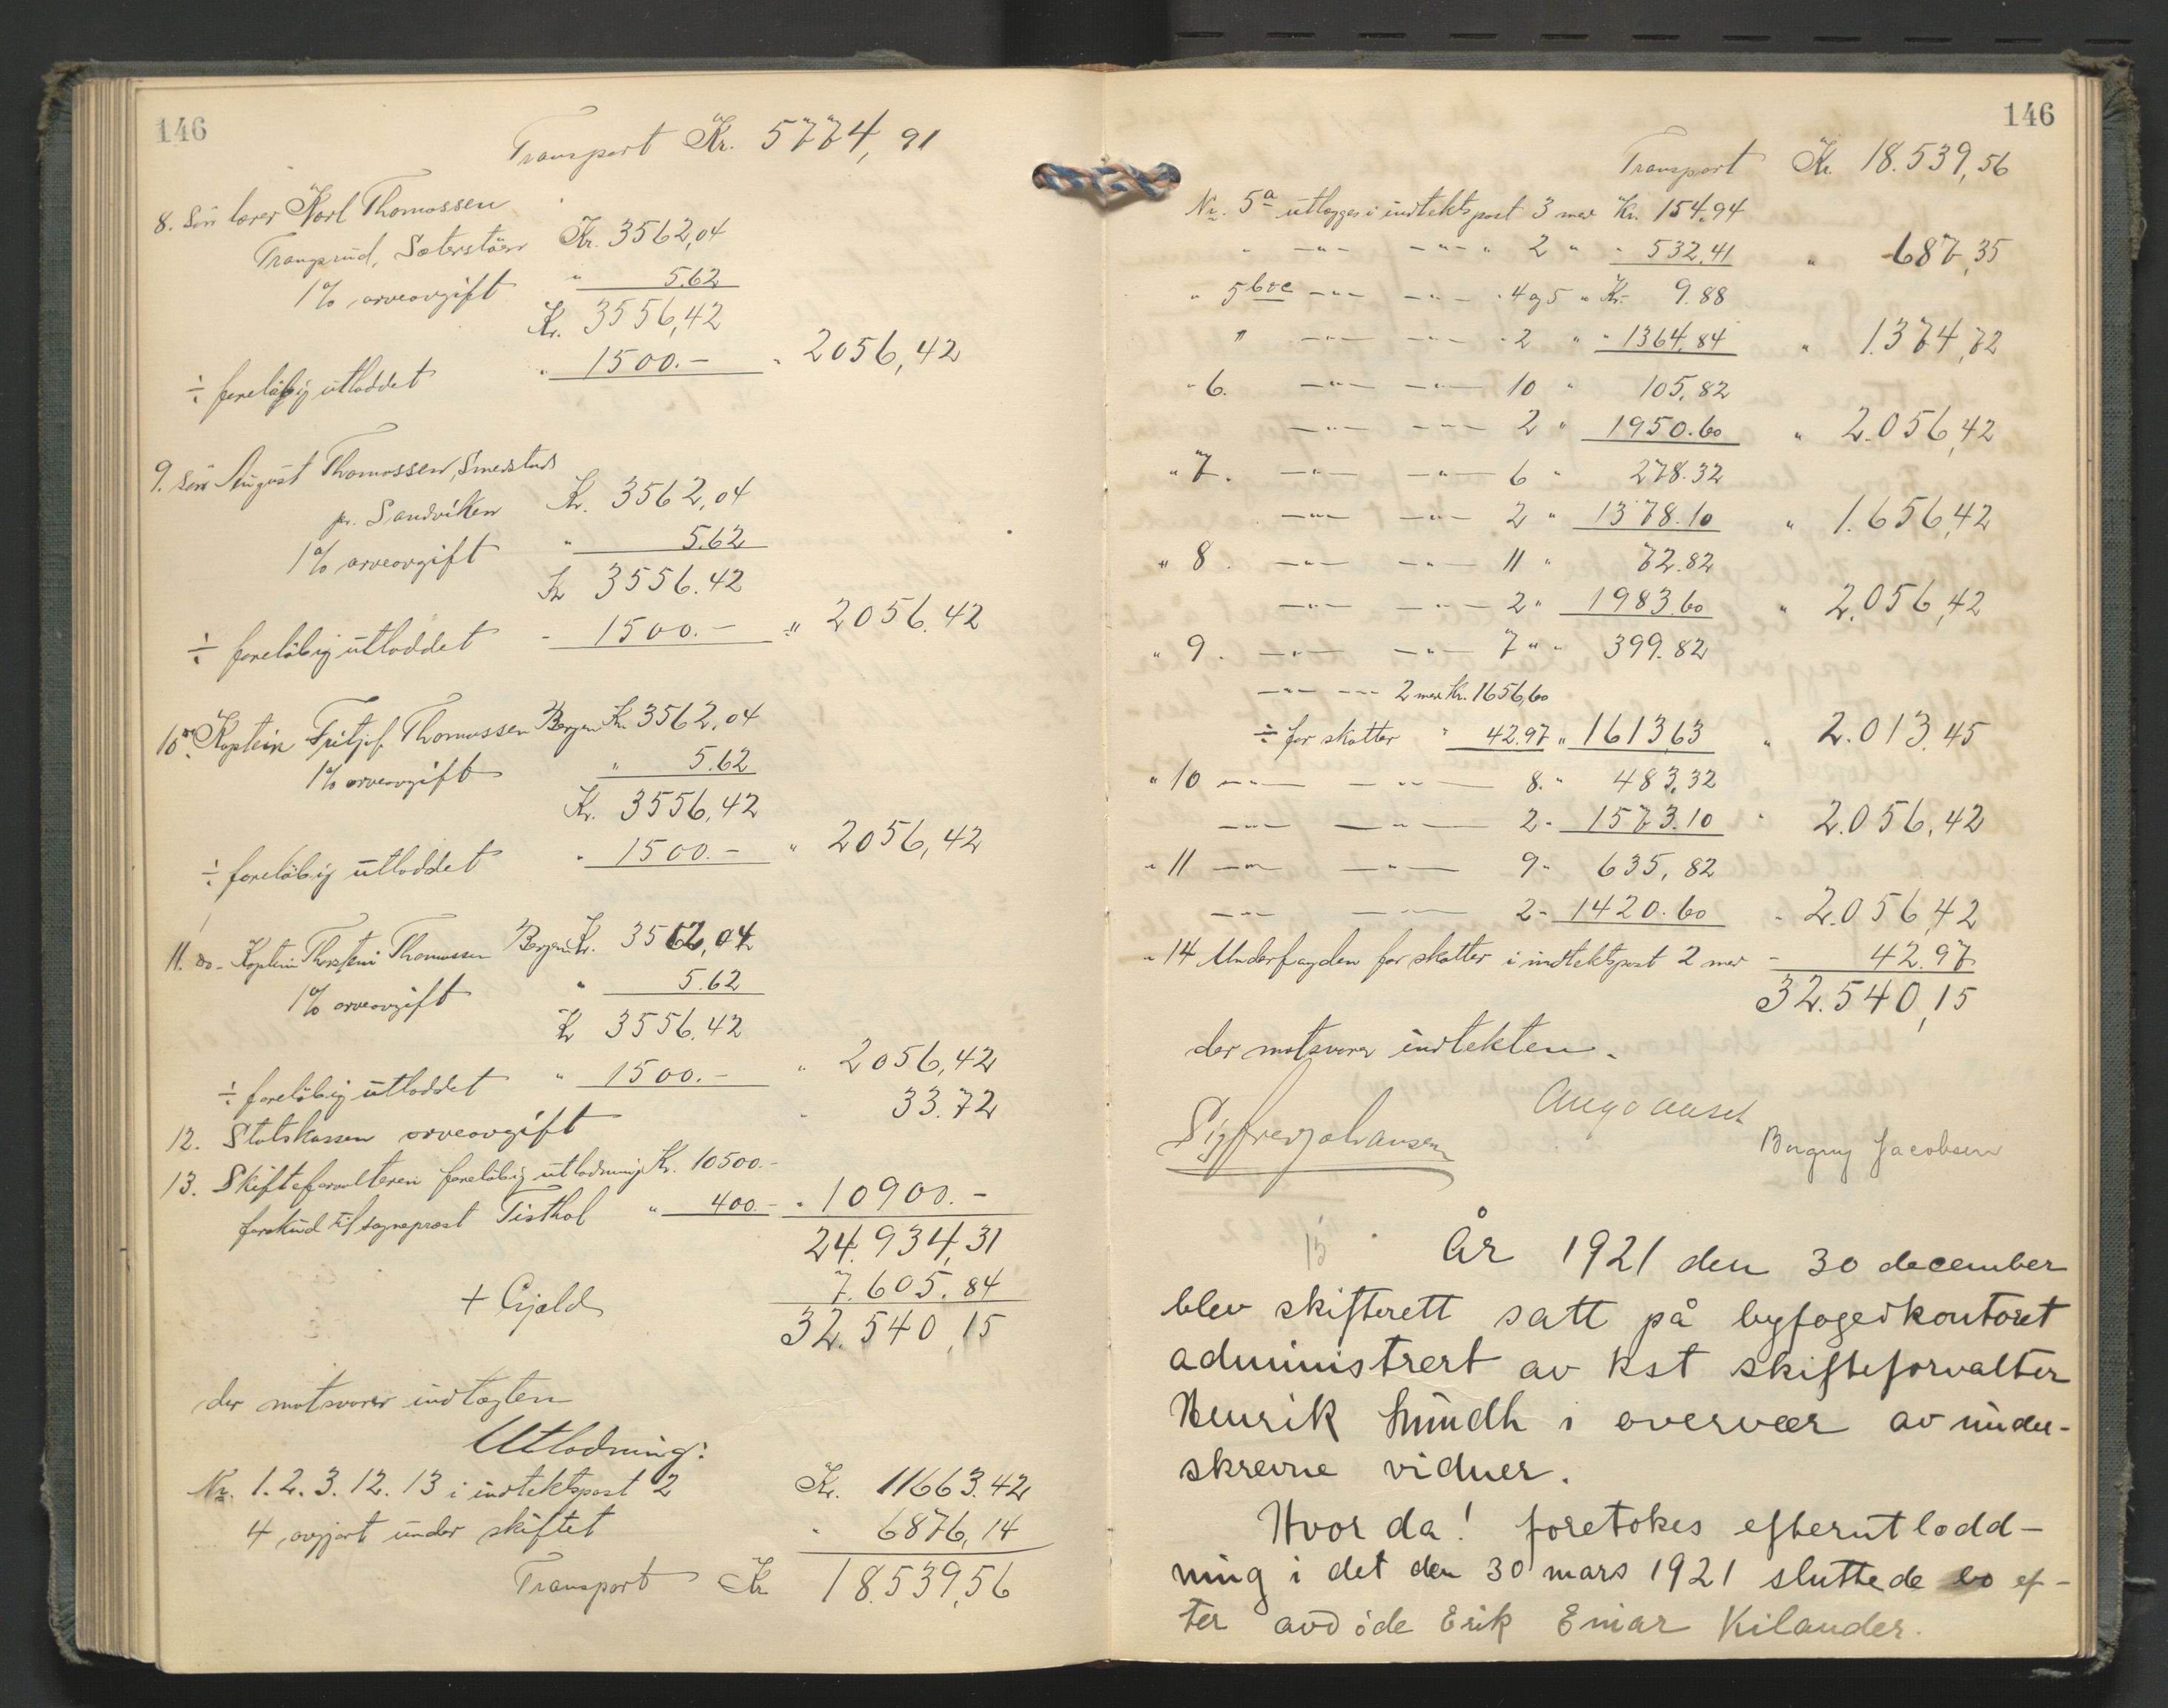 146
Transport Kr. 5774,91
8. Søn lærer Karl Thomassen
Trangsrud, Sæterstøen Kr. 3562,04
1% arveavgift " 5.62
Kr. 3556,42
÷ foreløbig utloddet " 1500.- " 2056,42
9. søn August Thomassen, Smedstad
pr. Sandviken Kr. 3562,04
1% arveavgift " 5.62
Kr 3556.42
÷ foreløbig utloddet - 1500.- " 2056.42
10. do Kaptein Fritjof Thomassen Bergen Kr. 3562,04
1% arveavgift " 5.62
Kr. 3556,42
÷ foreløbig utloddet " 1500.- " 2056,42
11. do- Kaptein Thomassen Bergen Kr. 3562,04
1% arveavgift " 5.62
Kr 3556.42
÷ foreløbig utloddet " 1500.- " 2056,42
12. Statskassen arveavgift - 33.72
13. Skifteforvalteren foreløbig utlodning Kr. 10500.-
forskud til sogneprest Tisthal " 400.- " 10900.-
24.934,31
+ Gjæld 7.605.84
32.540,15
der motsvarer indtægten
Utlodning:
Nr. 1. 2. 3. 12. 13 i indtektspost 2 Kr. 11663.42
4 avgjort under skiftet " 6876,14
Transport Kr 18.539,56
146
Transport Kr. 18.539,56
Nr. 5a utlægges i indtektspost 3 med Kr. 154.94
" -"- -"- " 2 " " 532.41 " 687,35
" 5b oc -"- -"- " 4 og 5 " Kr. 9.88
" -"- -"- " 2 " " 1364,84 " 1.374,72
" 6. -"- -"- 10 " 105,82
-"- -"- 2 " 1950.60 " 2.056,42
" 7. -"- -"- 6 " 278.32
-"- -"- 2 " 1378.10 " 1.656,42
" 8. -"- -"- 11 " 72.82
-"- -"- 2 " 1983.60 " 2.056,42
" 9. -"- -"- 7 " " 399.82
-"- -"- 2 med Kr. 1656,60
÷ for skatter " 42.97 " 1613,63 " 2.013.45
" 10 -"- -"- 8. " 483,32
-"- -"- 2 - 1573.10 " 2.056,42
" 11 -"- -"- 9 " 635,82
-"- -"- 2 - 1420.60 - 2.056,42
" 14 Underfogden for skatter i indtektspost 2 med - 42.97
32.540,15
der motsvarer indtekten.
Aug Jansen
Sigfred Johansen
Jacobsen
År 1921 den 30 december
blev skifterett satt på byfogedkontoret
administrert av kst skifteforvalter
Henrik Lundh i overvær av under-
skrevne vidner.
Hvor da! foretokes efterutlodd-
ning i det den 30 mars 1921 sluttede bo ef-
ter avdøde Erik Einar Kilander.